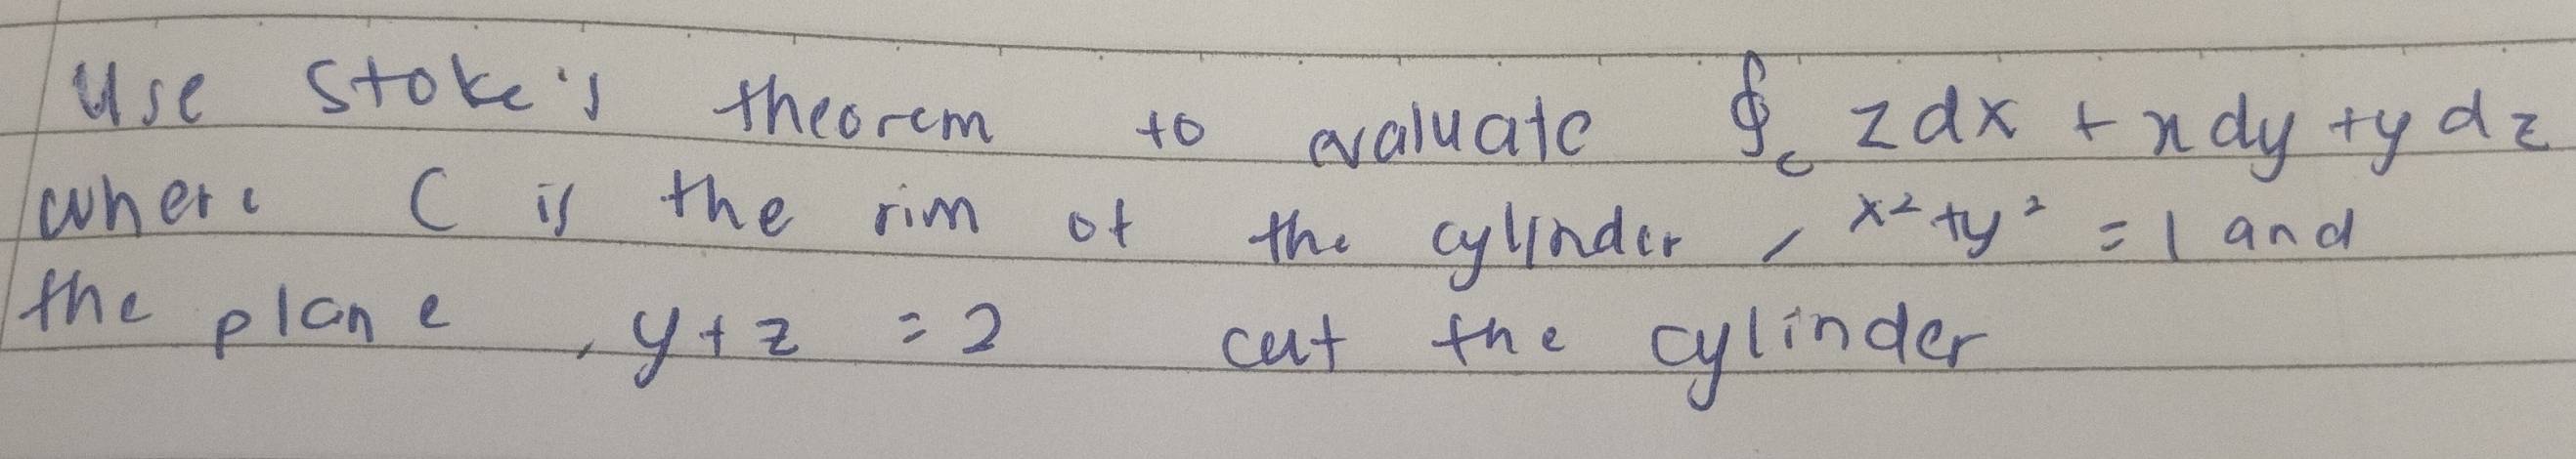 Use Stoke's theorem to evaluate ∮c zdx + xdy + ydz
where C is the rim of the cylinder, x² + y² = 1 and
the plane, y + z = 2 cut the cylinder